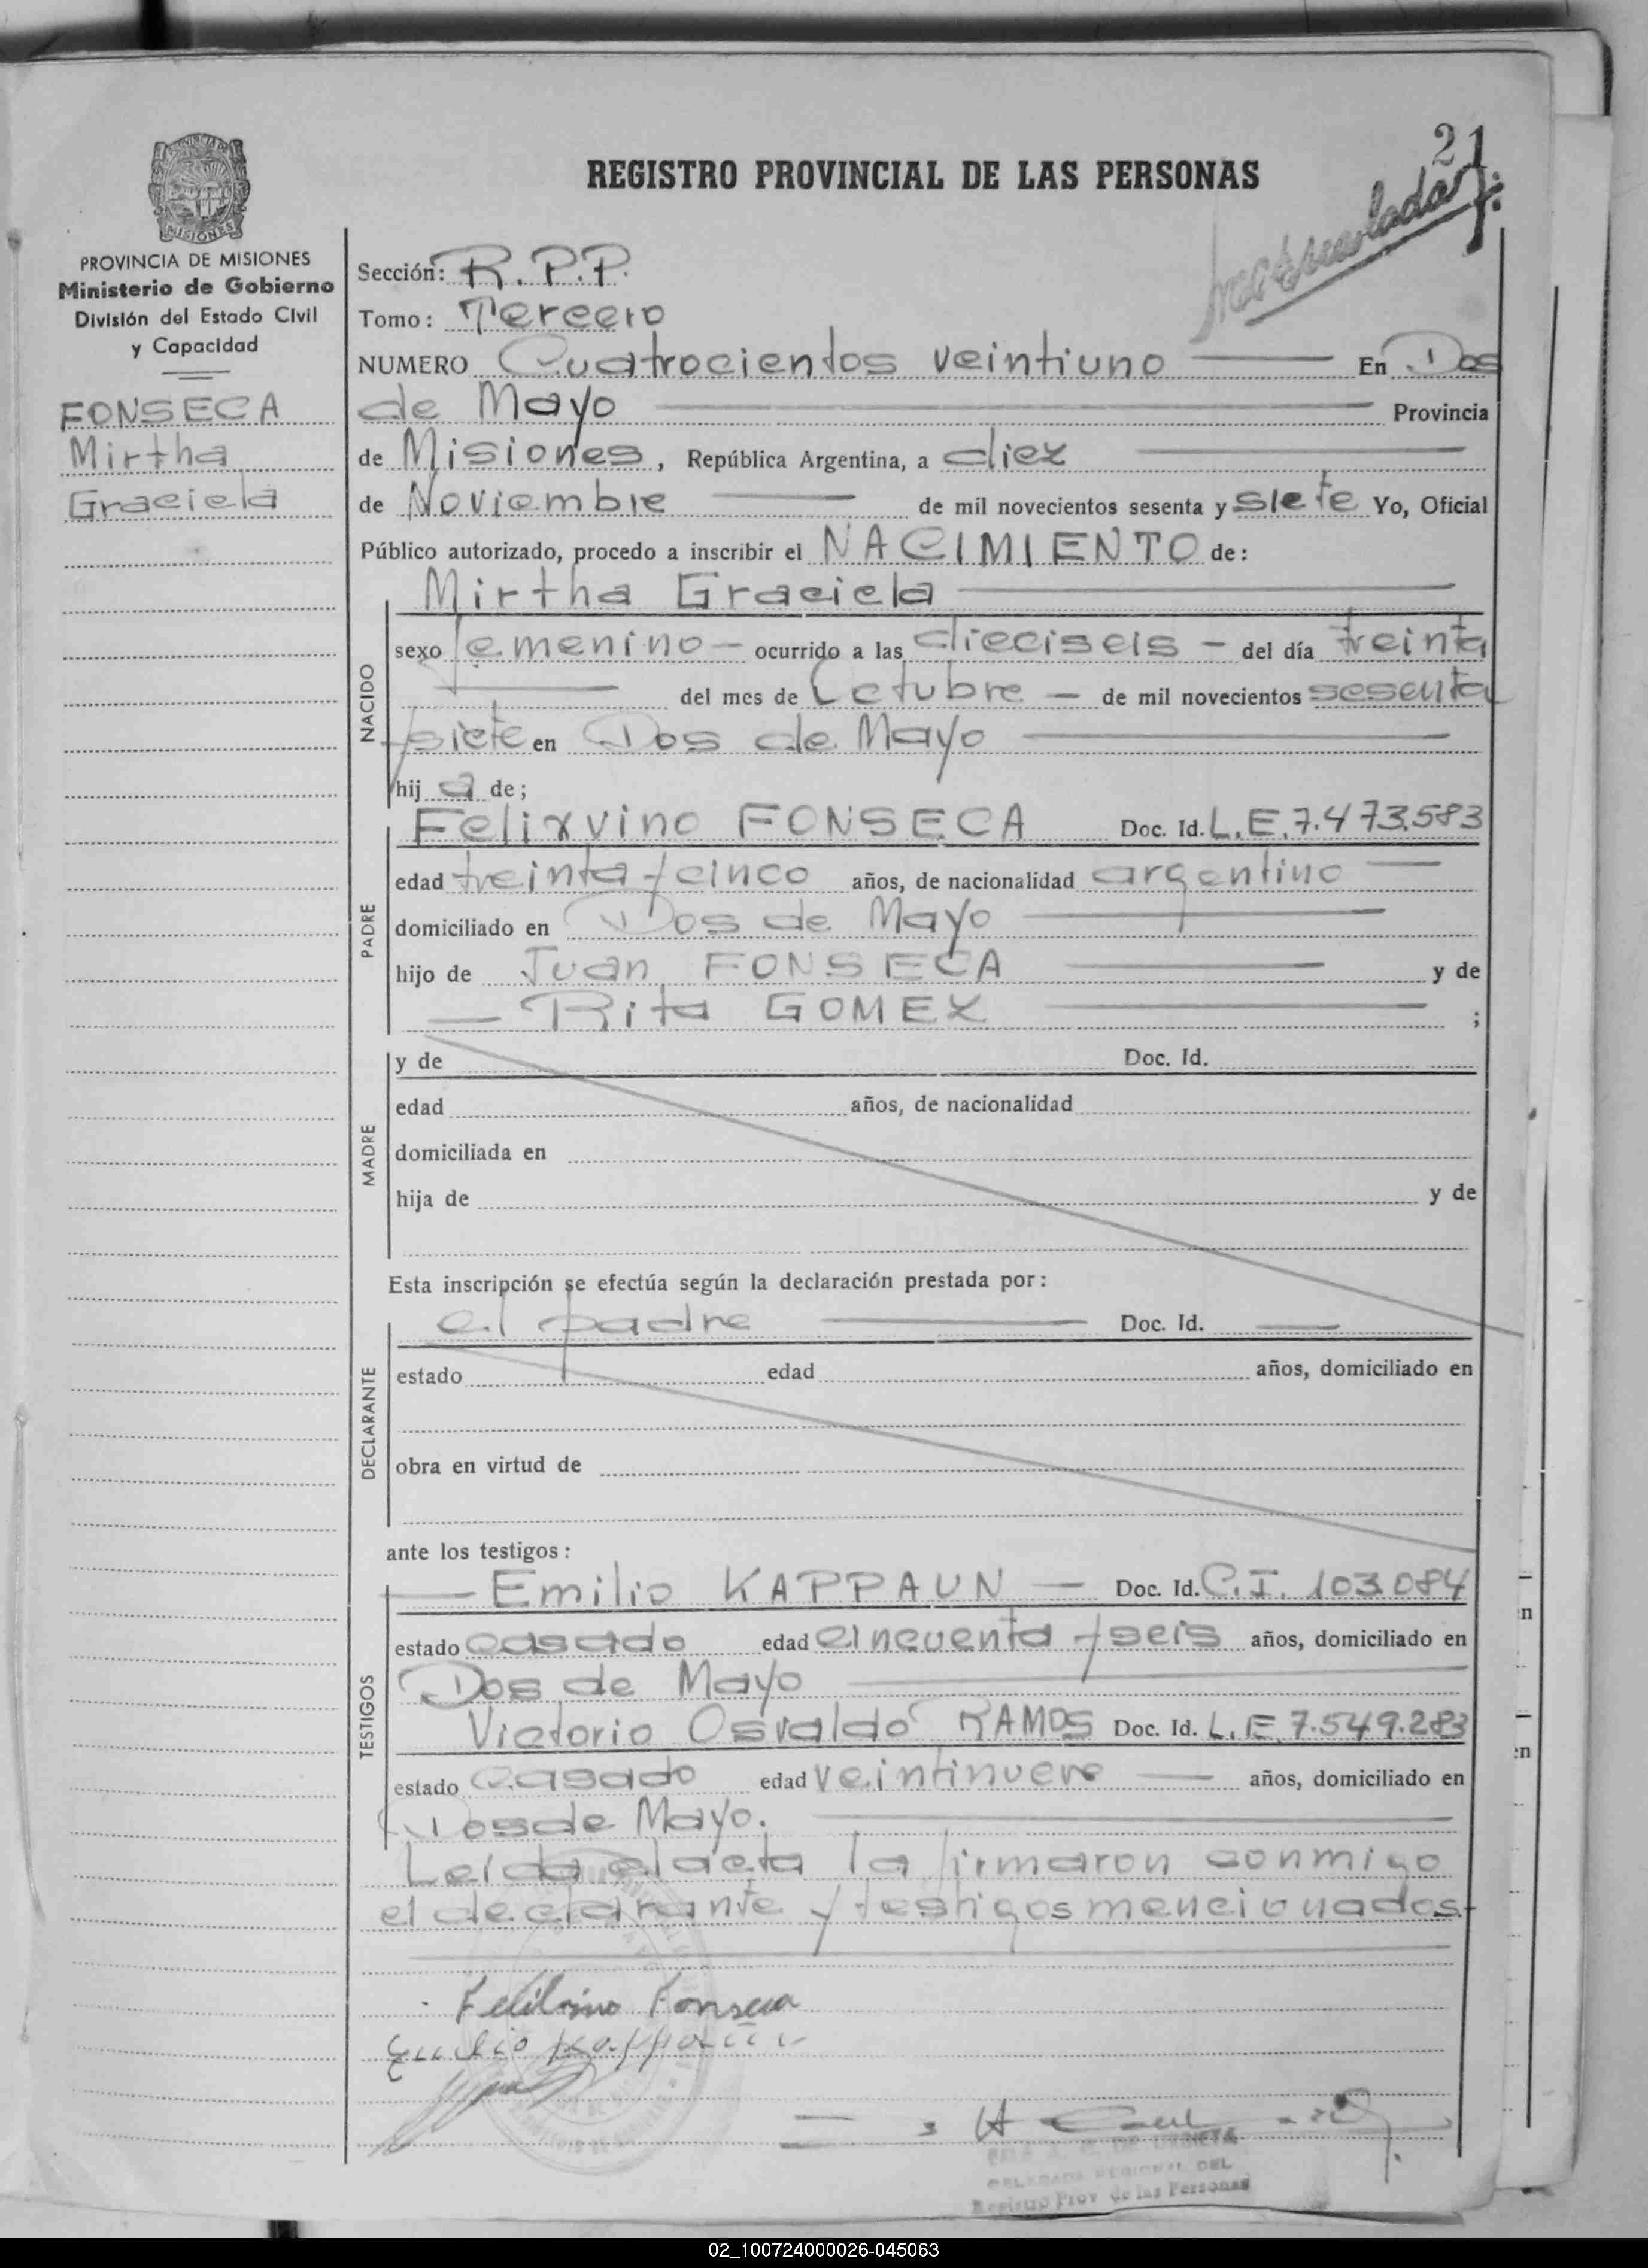 21
Matriculada
REGISTRO PROVINCIAL DE LAS PERSONAS
MISIONES
PROVINCIA DE MISIONES
Ministerio de Gobierno
División del Estado Civil
y Capacidad
FONSECA
Mirtha
Graciela
Sección: R.P.P.
Tomo: Tercero
NUMERO Cuatrocientos veintiuno En Dos
de Mayo Provincia
de Misiones, República Argentina, a diez
de Noviembre de mil novecientos sesenta y siete Yo, Oficial
Público autorizado, procedo a inscribir el NACIMIENTO de:
Mirtha Graciela
NACIDO
sexo femenino — ocurrido a las dieciseis — del día treinta
del mes de Octubre — de mil novecientos sesenta
y siete en Dos de Mayo
hij a de;
PADRE
Felixvino FONSECA Doc. Id. L.E. 7.473.583
edad treinta y cinco años, de nacionalidad argentino
domiciliado en Dos de Mayo
hijo de Juan FONSECA y de
— Rita GOMEZ ;
MADRE
y de Doc. Id.
edad años, de nacionalidad
domiciliada en
hija de y de
Esta inscripción se efectúa según la declaración prestada por:
DECLARANTE
el padre Doc. Id. —
estado edad años, domiciliado en
obra en virtud de
ante los testigos:
TESTIGOS
— Emilio KAPPAUN — Doc. Id. C.I. 103.084
estado casado edad cincuenta y seis años, domiciliado en
Dos de Mayo
Victorio Osvaldo RAMOS Doc. Id. L.E. 7.549.283
estado casado edad veintinueve — años, domiciliado en
Dos de Mayo.
Leída el acta la firmaron conmigo
el declarante y testigos mencionados.
Felilvino Fonseca
Emilio Kappaun
DELEGADA REGIONAL DEL
Registro Prov. de las Personas
en
en
02_100724000026-045063